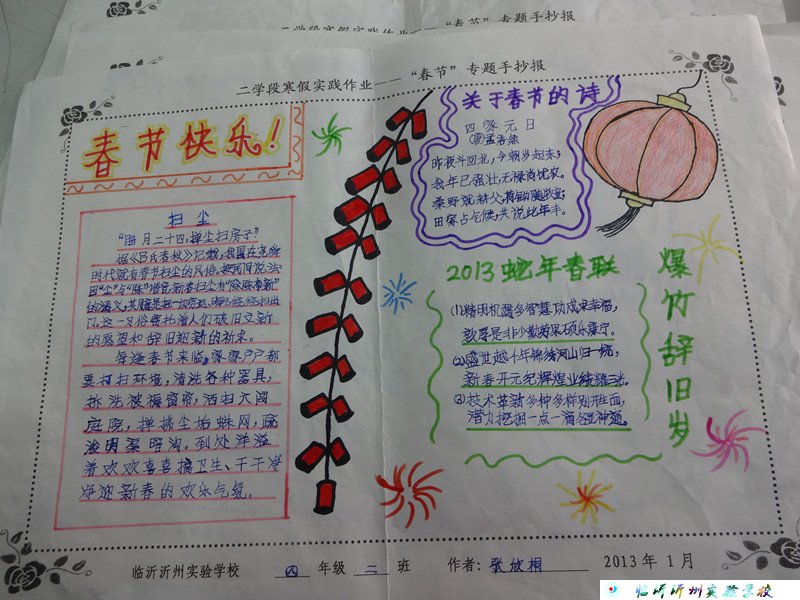 二学段寒假实践作业——“春节”专题手抄报
春节快乐!
扫尘
“腊月二十四,掸尘扫房子”
据《吕氏春秋》记载,我国在尧舜
时代就有春节扫尘的风俗。按民间说法:
因“尘”与“陈”谐音,新春扫尘有“除陈布新”
的涵义,其用意是把一切穷运、晦气统统扫出
门。这一习俗寄托着人们破旧立新的
的愿望和辞旧迎新的祈求。
每逢春节来临,家家户户都
要打扫环境,清洗各种器具,
拆洗被褥窗帘,洒扫六闾
庭院,掸拂尘垢蛛网,疏
浚明渠暗沟。到处洋溢
着欢欢喜喜搞卫生、干干净
净迎新春的欢乐气氛。
关于春节的诗
四家元日
(唐)孟浩然
昨夜斗回北,今朝岁起东;
我年已强壮,无禄尚忧农。
桑野就耕父,荷锄随牧童;
田家占气候,共说此年丰。
2013蛇年春联
(1)精明机灵多智慧功成来幸福,
敦厚是非少勤劳果硕乐康宁。
(2)盛世越千年锦绣河山归一统,
新春开元纪辉煌业绩耀三光。
(3)技术革新多种多样别开生面,
潜力挖掘一点一滴各显神通。
爆竹辞旧岁
临沂沂州实验学校 四 年级 二 班 作者: 张欣桐 2013年1月
临沂沂州实验学校